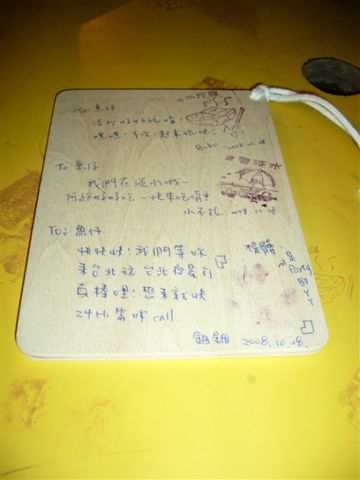 To 魚仔
淡水好好玩唷!
嘿嘿! 下次一起來玩吧!
2008.10.08
To 魚仔
我們在淡水哦~
阿給好好吃~快來吃唷!!
2008.10.08
To: 魚仔
快快快! 我們等妳
來台北玩 台北夜景可
真棒哩! 想來就快
24H 等妳 call
2008.10.08.